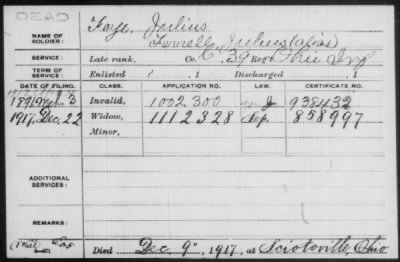 DEAD
NAME OF SOLDIER: Faye, Julius
Ferrell, Julius (alias)
SERVICE: Late rank, Co. C, 39 Reg't Ohio Inf
TERM OF SERVICE: Enlisted , 1 Discharged , 1
DATE OF FILING. CLASS. APPLICATION NO. LAW. CERTIFICATE NO.
1891 3 Invalid, 1002300 938432
1917, Dec. 22 Widow, 1112328 Sep. 858997
Minor,
ADDITIONAL SERVICES:
REMARKS:
Died Dec. 9", 1917, at Sciotoville, Ohio